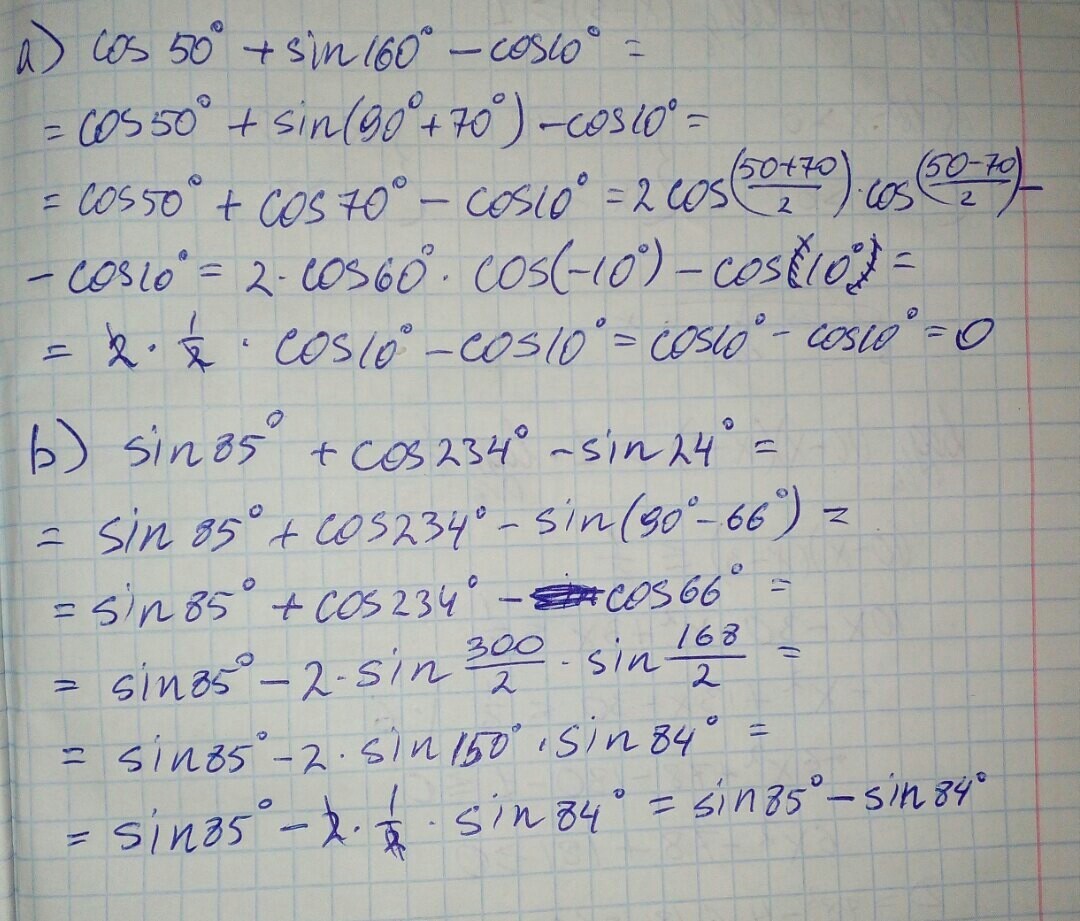 a) cos 50° + sin 160° - cos 10° =
= cos 50° + sin(90° + 70°) - cos 10° =
= cos 50° + cos 70° - cos 10° = 2 cos(50+70/2) · cos(50-70/2) -
- cos 10° = 2 · cos 60° · cos(-10°) - cos 10° =
= 2 · 1/2 · cos 10° - cos 10° = cos 10° - cos 10° = 0
b) sin 85° + cos 234° - sin 24° =
= sin 85° + cos 234° - sin(90° - 66°) =
= sin 85° + cos 234° - cos 66° =
= sin 85° - 2 · sin 300/2 · sin 168/2 =
= sin 85° - 2 · sin 150° · sin 84° =
= sin 85° - 2 · 1/2 · sin 84° = sin 85° - sin 84°